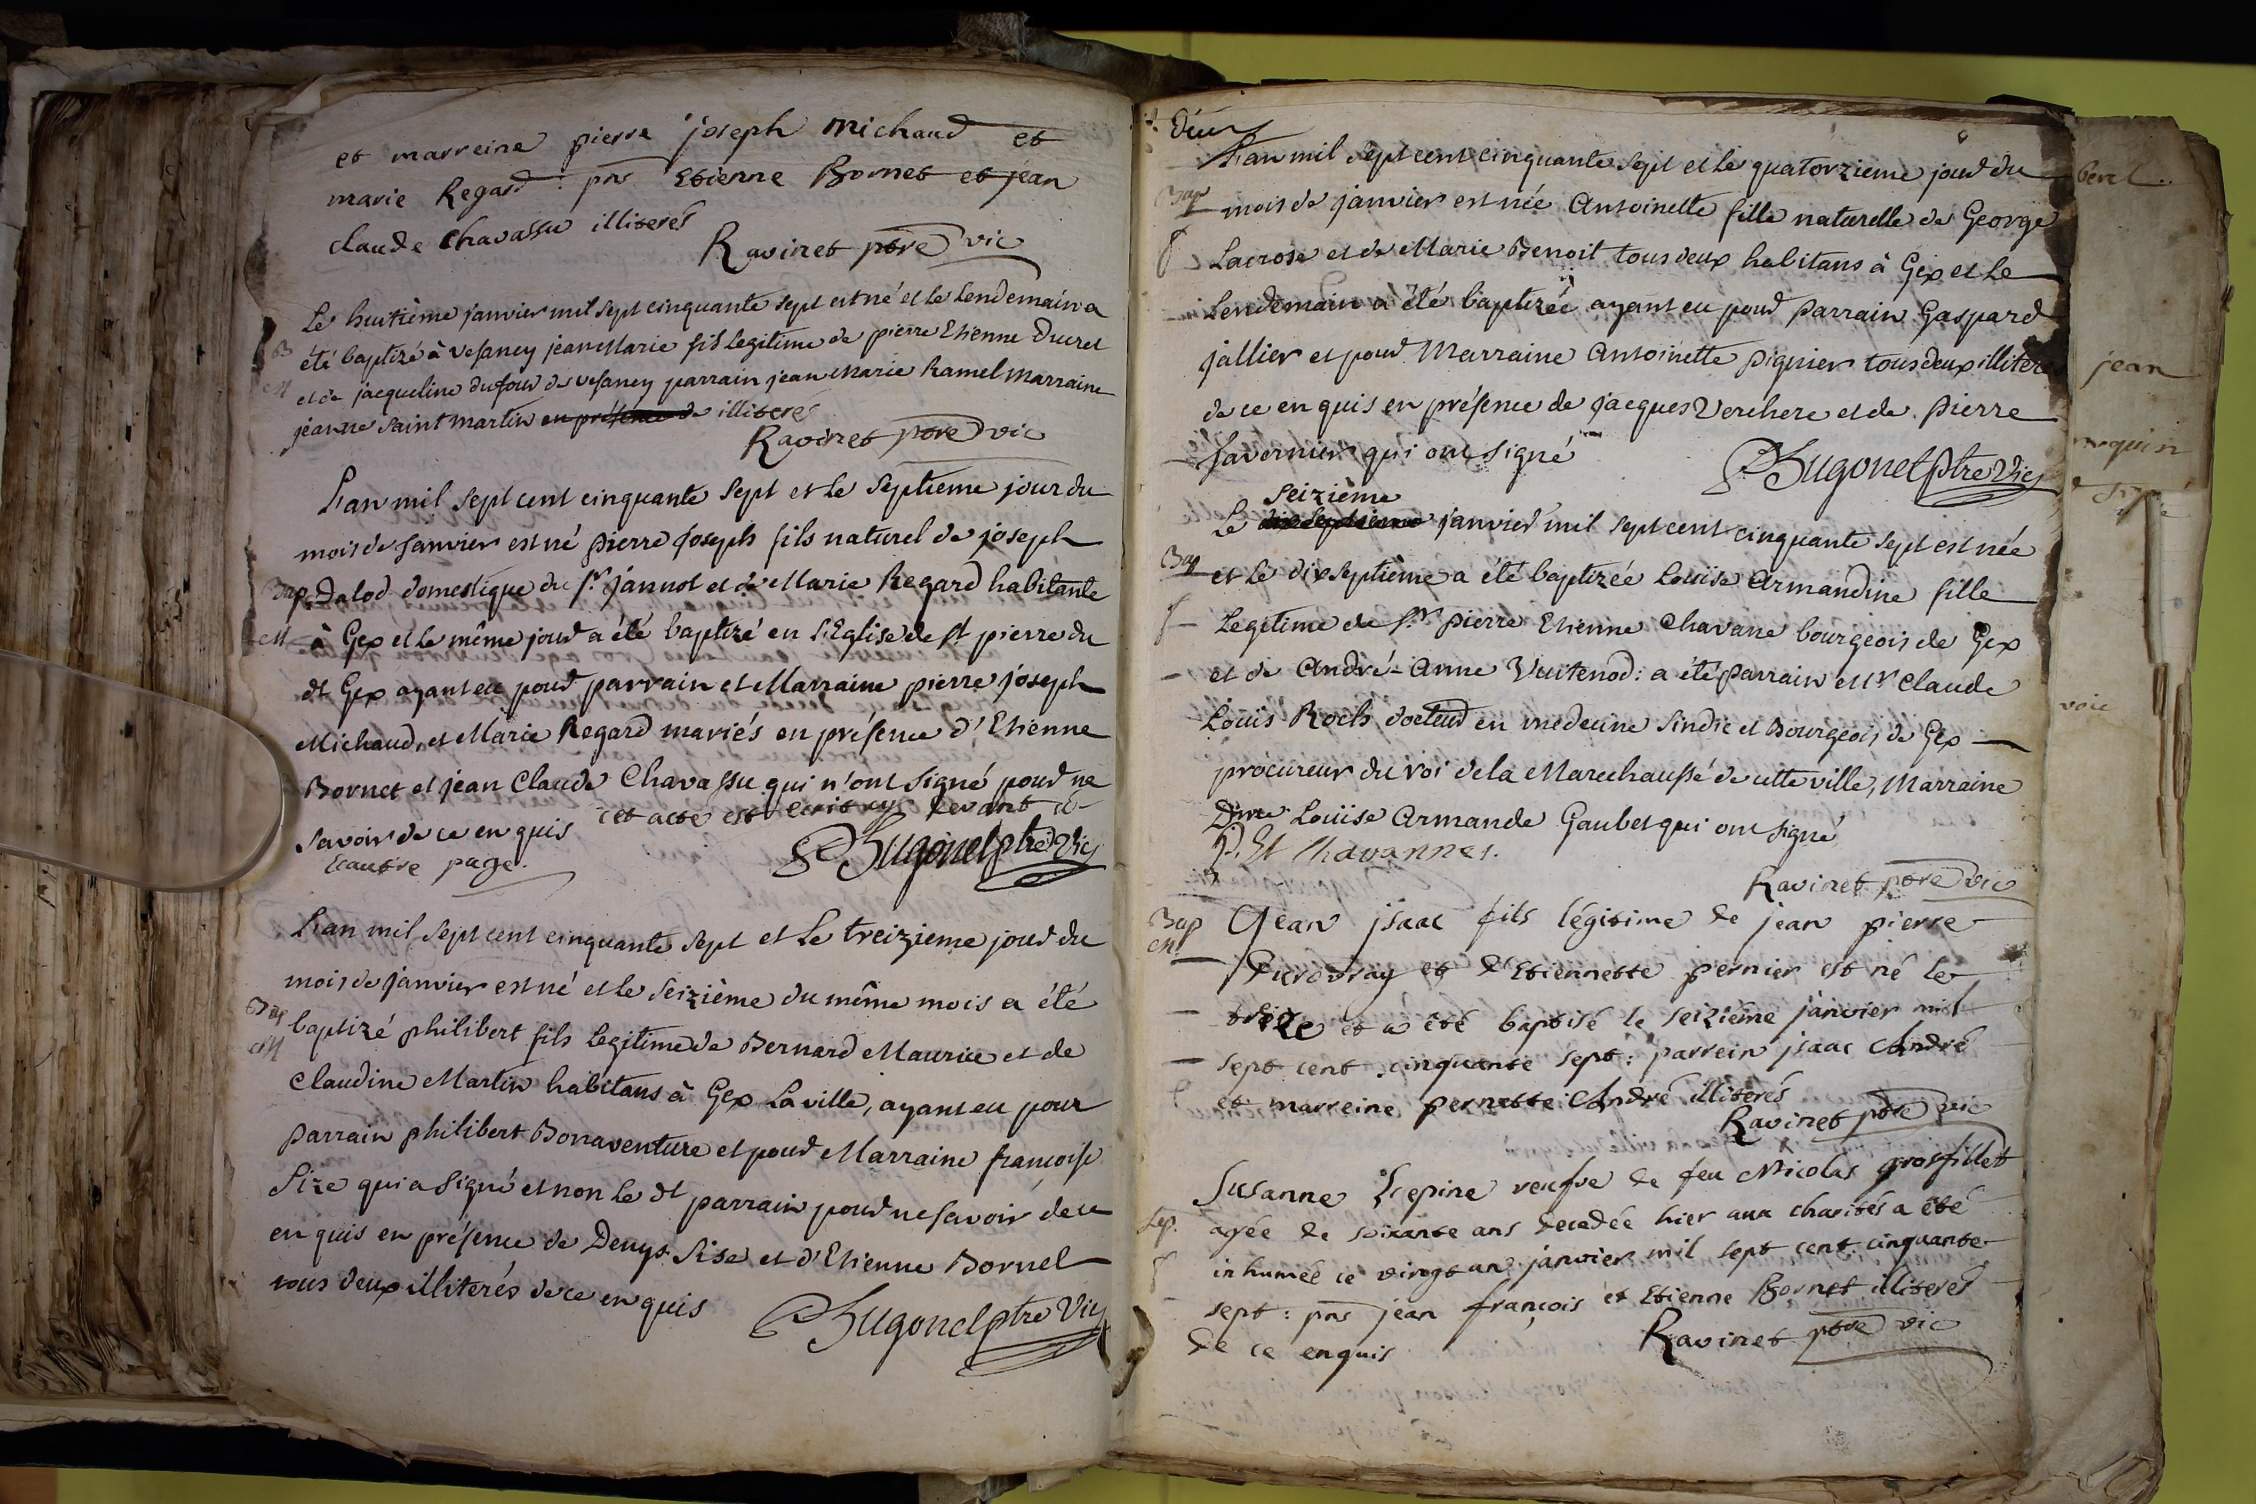 et marreine pierre joseph michaud et
marie Regard : pns Etienne Bornet et jean
claude Chavassu illiterés
Ravinet ptre vic
Le huitième janvier mil sept cinquante sept est né et le lendemain a
B été baptizé à vesancy jean Marie fils legitime de pierre Etienne Ducret
M et de jacqueline dufour de vesancy parrain jean Marie Ramel Marraine
jeanne saint martin en présence de illiterés
Ravinet ptre vic
L'an mil sept cent cinquante sept et le septieme jour du
mois de janvier est né pierre joseph fils naturel de joseph
Bap. Dalod domestique du sr. jannot et de Marie Regard habitante
M à Gex et le même jour a été baptizé en l'Eglise de st pierre du
dt Gex ayant eu pour parrain et Marraine pierre joseph
Michaud et Marie Regard mariés en présence d'Etienne
Bornet et jean Claude Chavassu qui n'ont signé pour ne
savoir de ce enquis cet acte est ecrit cy devant a
l'autre page.
Bugonet ptre Vic
L'an mil sept cent cinquante sept et le treizieme jour du
mois de janvier est né et le seizième du même mois a été
Bap baptizé philibert fils legitime de Bernard Maurice et de
M Claudine Martin habitans à Gex la ville, ayant eu pour
parrain philibert Bonaventure et pour Marraine françoise
Size qui a signé et non le dt parrain pour ne savoir de ce
enquis en présence de Denys Sise et d'Etienne Bornet
tous deux illiterés de ce enquis
Bugonet ptre Vic
deux
L'an mil sept cent cinquante sept et le quatorzieme jour du
Bap mois de janvier est née Antoinette fille naturelle de George
f Lacrose et de Marie Benoit tous deux habitans à Gex et le
lendemain a été baptizée ayant eu pour parrain Gaspard
jallier et pour Marraine Antoinette pignier tous deux illiterés
de ce enquis en présence de jacques Verchere et de pierre
Favernier qui ont signé
Bugonet ptre Vic
seizième
Le dix septieme janvier mil sept cent cinquante sept est née
Bap et le dix septième a été baptizée Louïse Armandine fille
f legitime de sr. pierre Etienne Chavane bourgeois de Gex
et de André-Anne Vuitenod : a été parrain Mr Claude
Louïs Roch docteur en medecine sindic et Bourgeois de Gex
procureur du roi de la Marechaussé de cette ville, Marraine
Dme Louïse Armande Gaubet qui ont signé
P. Et Chavannes.
Ravinet ptre vic
Bap Jean jsaac fils légitime de jean pierre
M. Durovray et d'Etiennette pernier est né le
treize et a été baptisé le seizième janvier mil
sept cent cinquante sept : parrein jsaac André
et marreine pernette André illiterés
Ravinet ptre vic
Susanne Lepine veufve de feu Nicolas grosfillet
Sep. agée de soixante ans decedée hier aux charités a été
f inhumée ce vingt un janvier mil sept cent cinquante
sept : pns jean françois et Etienne Bornet illiteres
de ce enquis
Ravinet ptre vic
jean
voie